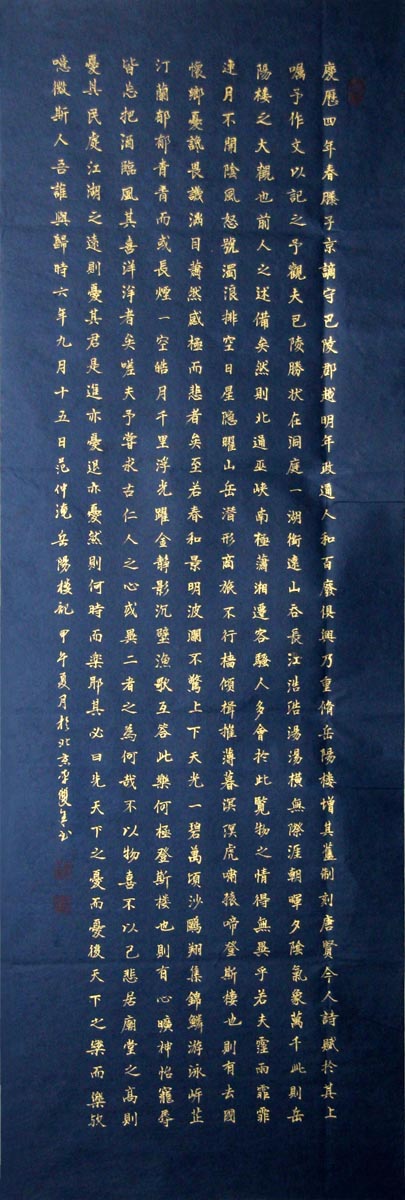 慶曆四年春滕子京謫守巴陵郡越明年政通人和百廢俱興乃重脩岳陽樓增其舊制刻唐賢今人詩賦於其上
囑予作文以記之予觀夫巴陵勝狀在洞庭一湖銜遠山吞長江浩浩湯湯橫無際涯朝暉夕陰氣象萬千此則岳
陽樓之大觀也前人之述備矣然則北通巫峽南極瀟湘遷客騷人多會於此覽物之情得無異乎若夫霪雨霏霏
連月不開陰風怒號濁浪排空日星隱曜山岳潛形商旅不行檣傾楫摧薄暮溟溟虎嘯猿啼登斯樓也則有去國
懷鄉憂讒畏譏滿目蕭然感極而悲者矣至若春和景明波瀾不驚上下天光一碧萬頃沙鷗翔集錦鱗游泳岍芷
汀蘭郁郁青青而或長煙一空皓月千里浮光躍金靜影沉璧漁歌互答此樂何極登斯樓也則有心曠神怡寵辱
皆忘把酒臨風其喜洋洋者矣嗟夫予嘗求古仁人之心或異二者之為何哉不以物喜不以己悲居廟堂之高則
憂其民處江湖之遠則憂其君是進亦憂退亦憂然則何時而樂耶其必曰先天下之憂而憂後天下之樂而樂歟
噫微斯人吾誰與歸時六年九月十五日范仲淹岳陽樓記 甲午夏月於北京